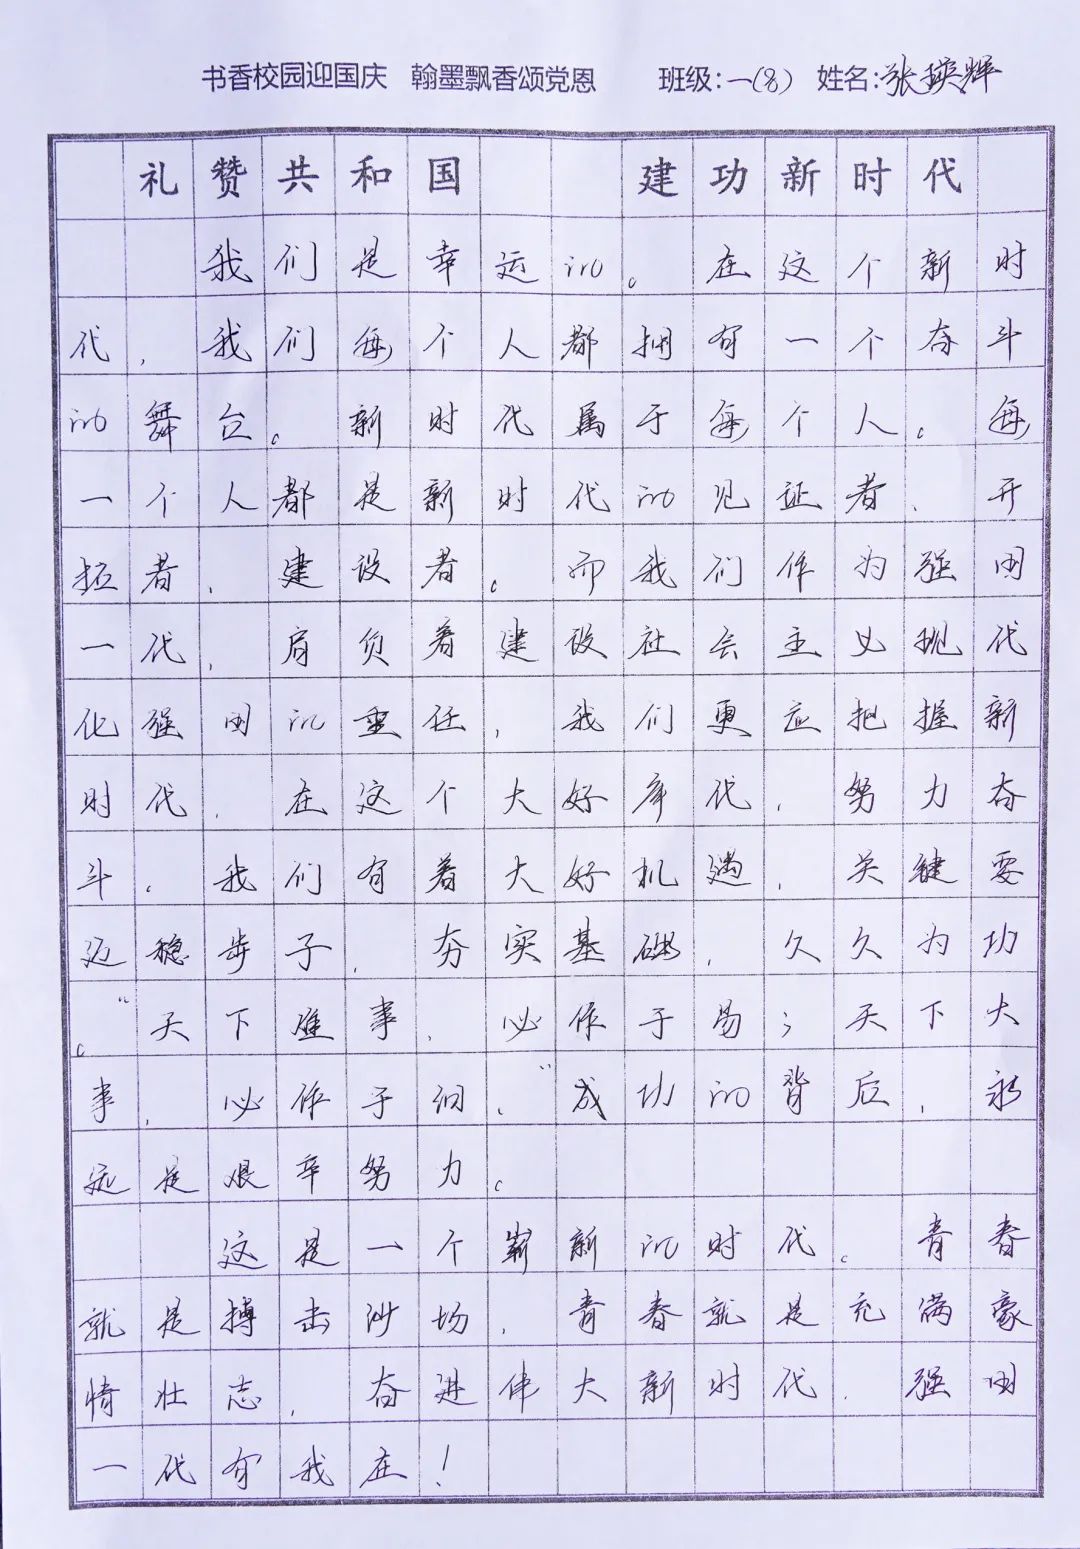 书香校园迎国庆 翰墨飘香颂党恩 班级:一(8) 姓名:张瑛辉
礼赞共和国 建功新时代
我们是幸运的。在这个新时
代,我们每个人都拥有一个奋斗
的舞台。新时代属于每个人。每
一个人都是新时代的见证者、开
拓者、建设者。而我们作为强国
一代,肩负着建设社会主义现代
化强国的重任,我们更应把握新
时代,在这个大好年代,努力奋
斗。我们有着大好机遇,关键要
迈稳步子,夯实基础,久久为功
。“天下难事,必作于易;天下大
事,必作于细。”成功的背后,永
远是艰辛努力。
这是一个崭新的时代。青春
就是搏击沙场,青春就是充满豪
情壮志,奋进伟大新时代,强国
一代有我在!